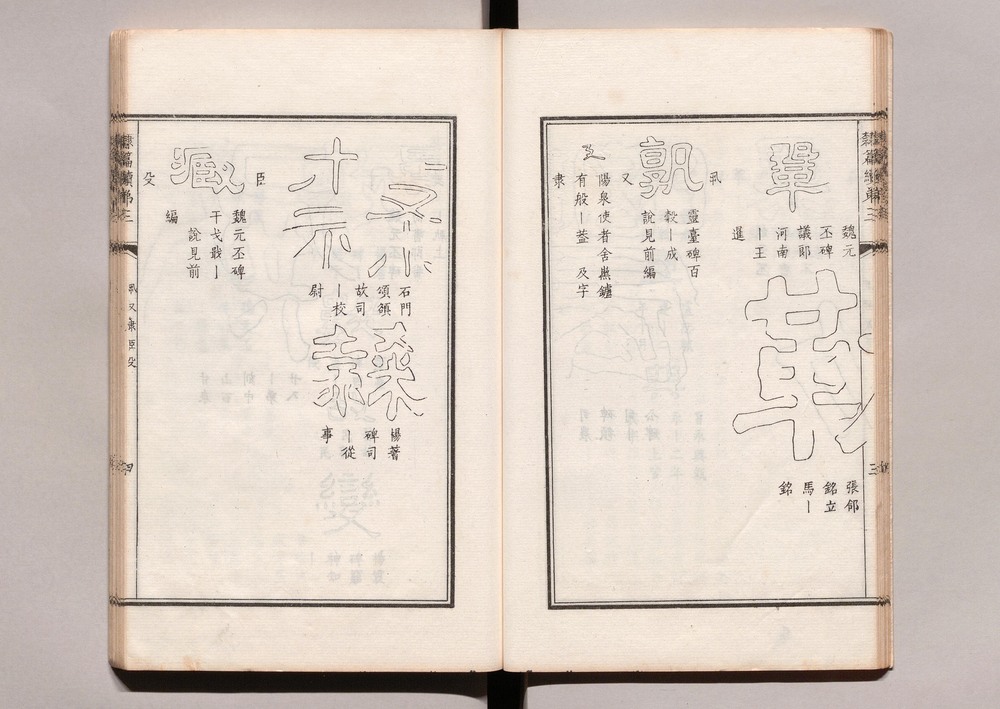 鞏
魏元
丕碑
議郎
河南
丨王
暹
張郃
銘立
馬丨
銘
丮
孰
靈臺碑百
穀丨成
說見前編
又
陽泉使者舍熏鑪
有般丨葢 及字
隶
石門
頌頟
故司
丨校
尉
隸
楊著
碑司
丨從
事
臣
臧
魏元丕碑
干戈戢丨
說見前
編
殳
隸篇續第三
丮又隶臣殳
四